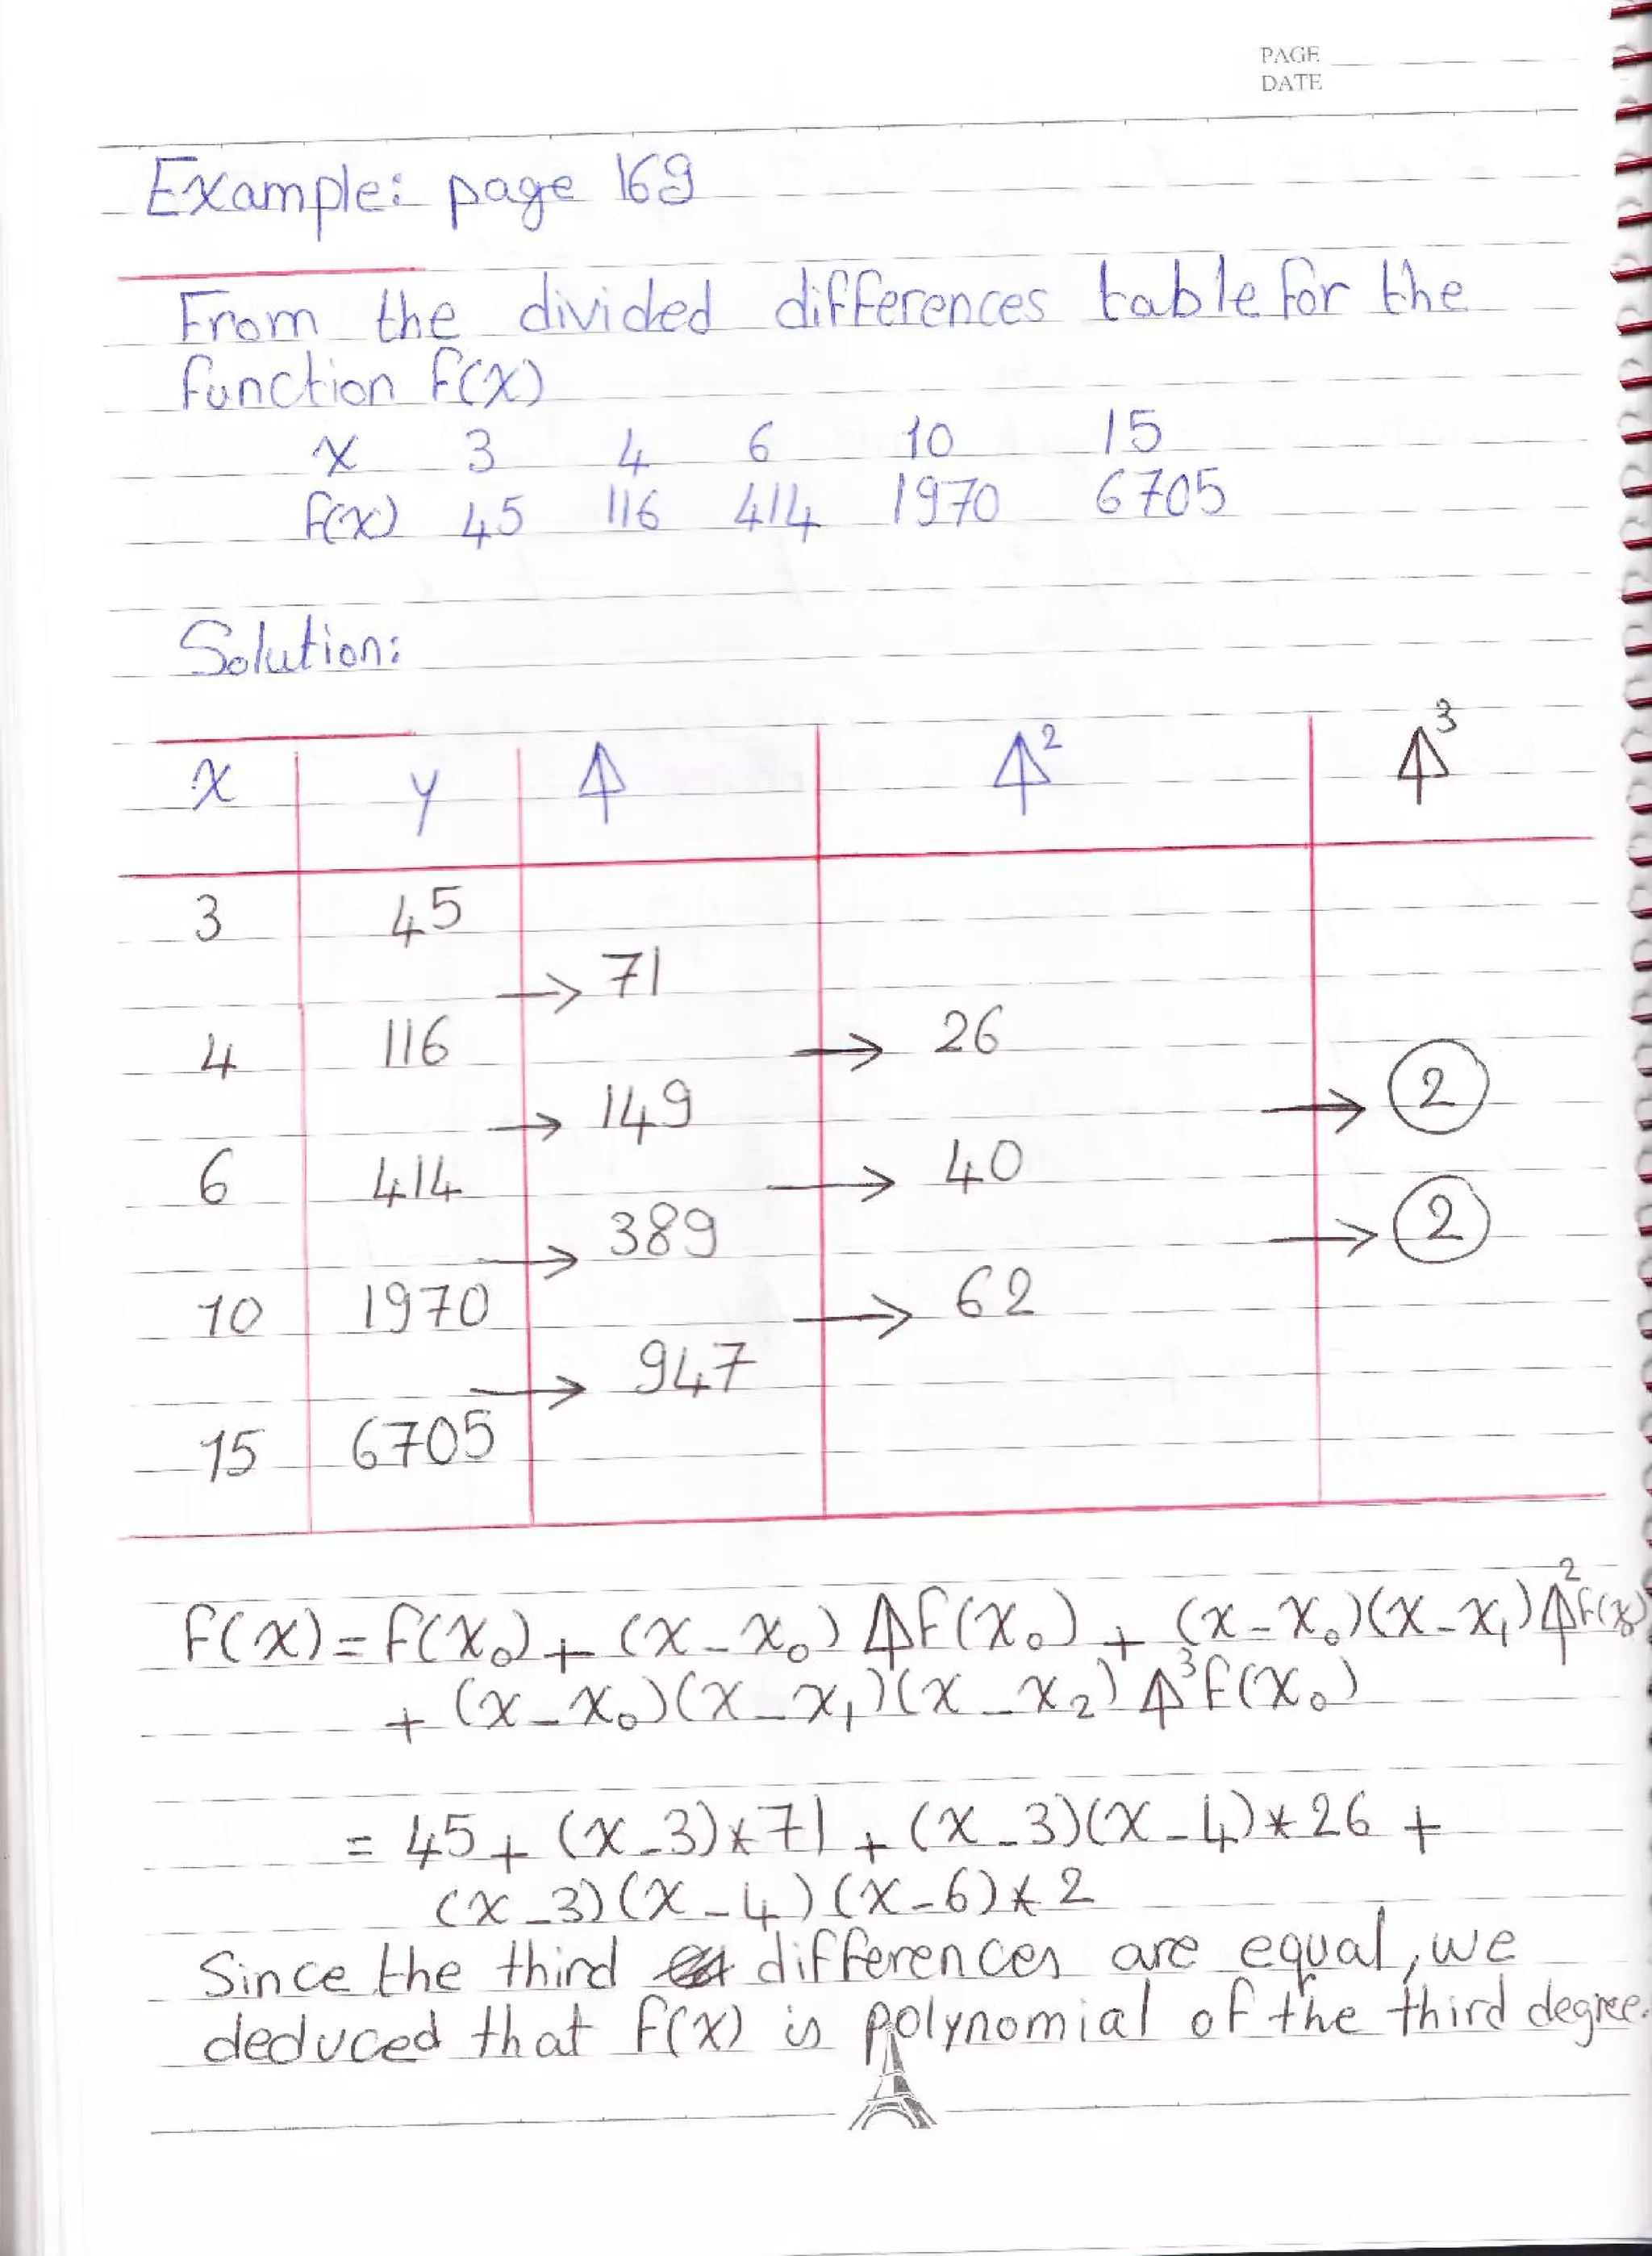 PAGE
DATE
Example: page 169
From the divided differences table for the
function f(x)
x 3 4 6 10 15
f(x) 45 116 414 1970 6705
Solution:
x y ⍋ ⍋² ⍋³
3 45
71
4 116 26
149 2
6 414 40
389 2
10 1970 62
947
15 6705
f(x) = f(x₀) + (x - x₀) ⍋f(x₀) + (x - x₀)(x - x₁) ⍋²f(x₀)
+ (x - x₀)(x - x₁)(x - x₂) ⍋³f(x₀)
= 45 + (x - 3)*71 + (x - 3)(x - 4)*26 +
(x - 3)(x - 4)(x - 6)*2
Since the third differences are equal, we
deduced that f(x) is polynomial of the third degree.